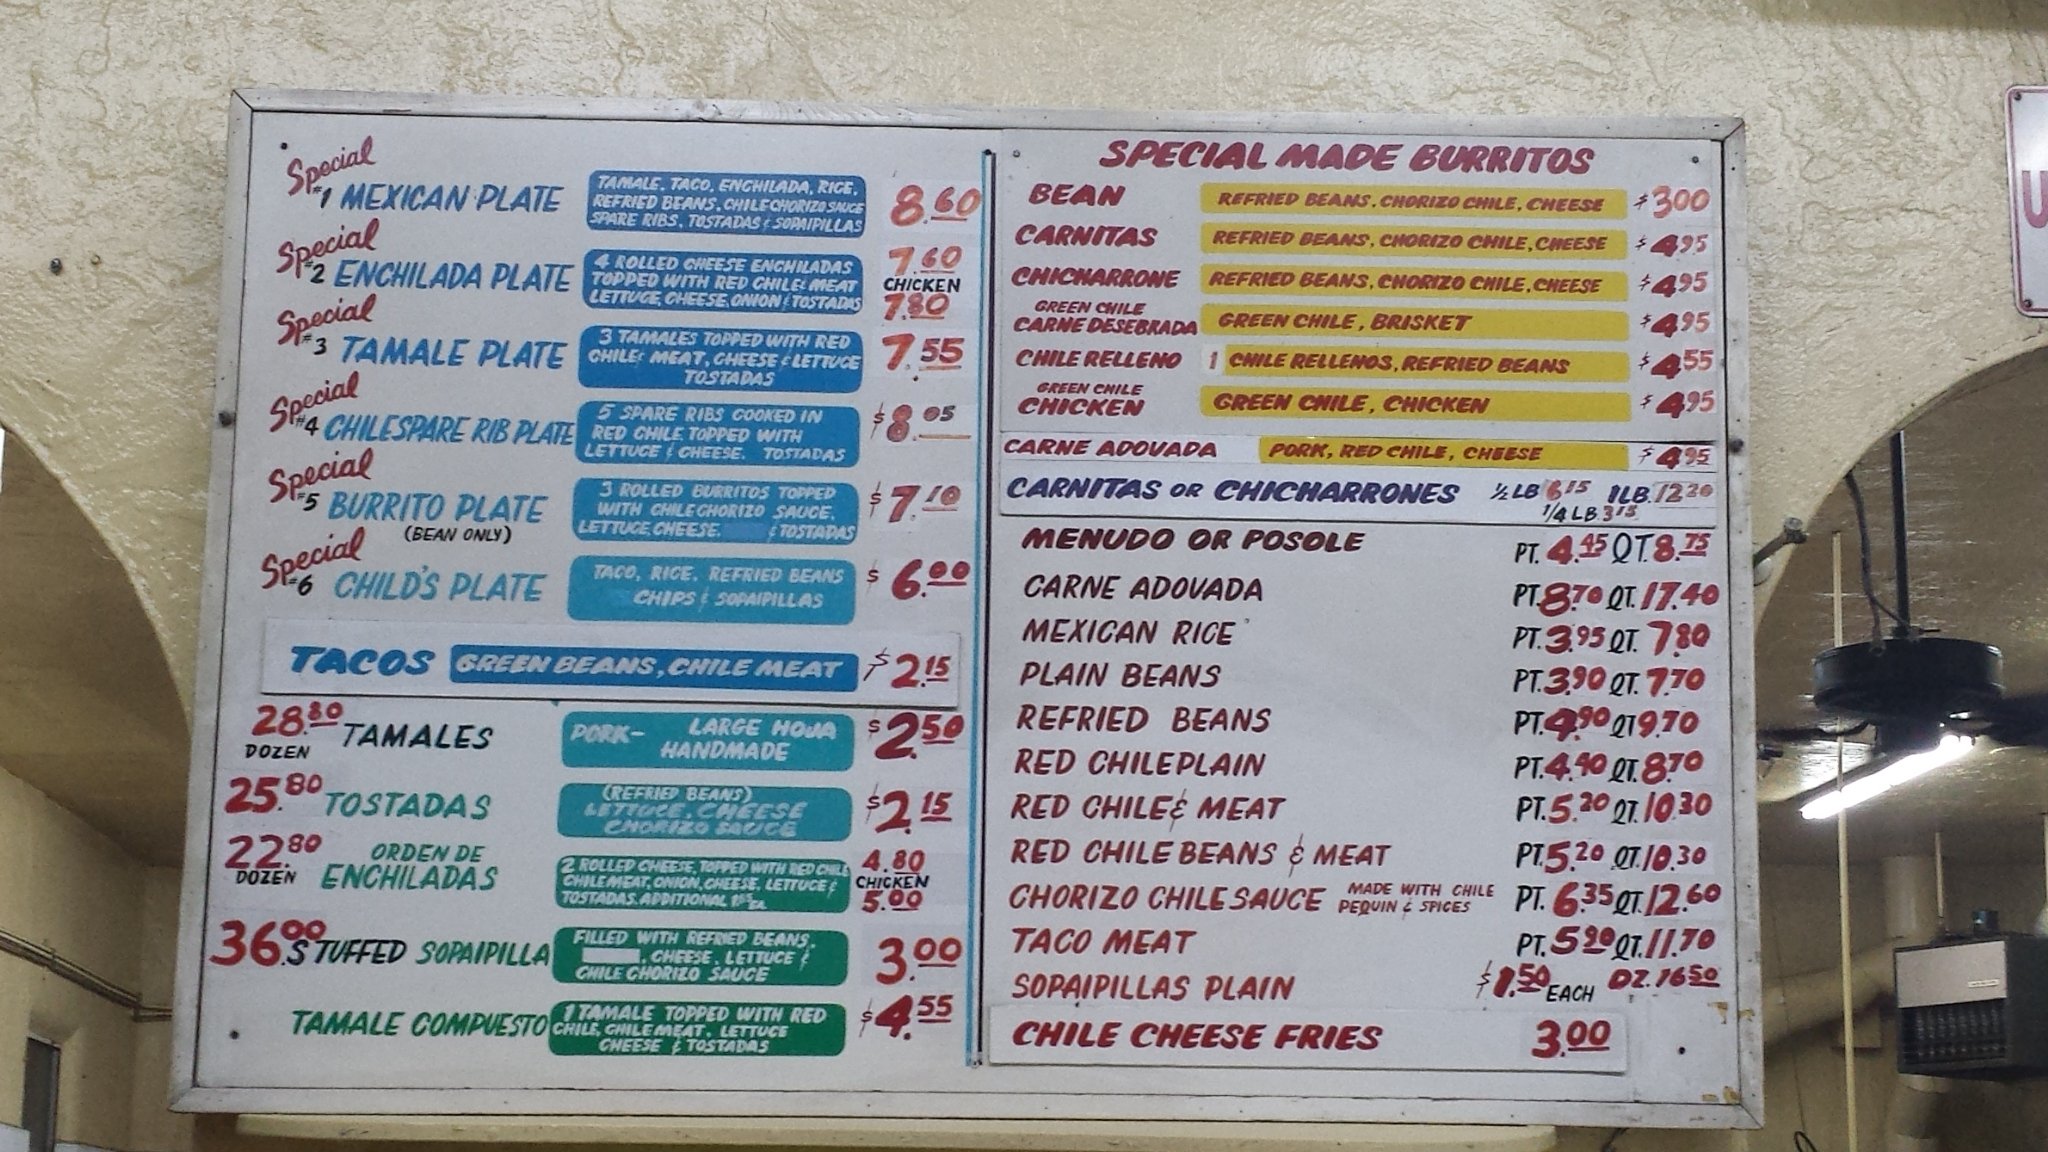 Special
#1 MEXICAN PLATE
TAMALE, TACO, ENCHILADA, RICE,
REFRIED BEANS, CHILE CHORIZO SAUCE
SPARE RIBS, TOSTADAS & SOPAIPILLAS
8.60
Special
#2 ENCHILADA PLATE
4 ROLLED CHEESE ENCHILADAS
TOPPED WITH RED CHILE & MEAT
LETTUCE, CHEESE, ONION & TOSTADAS
7.60
CHICKEN
7.80
Special
#3 TAMALE PLATE
3 TAMALES TOPPED WITH RED
CHILE & MEAT, CHEESE & LETTUCE
TOSTADAS
7.55
Special
#4 CHILE SPARE RIB PLATE
5 SPARE RIBS COOKED IN
RED CHILE TOPPED WITH
LETTUCE & CHEESE. TOSTADAS
$8.05
Special
#5 BURRITO PLATE
(BEAN ONLY)
3 ROLLED BURRITOS TOPPED
WITH CHILE CHORIZO SAUCE,
LETTUCE, CHEESE. & TOSTADAS
$7.10
Special
#6 CHILD'S PLATE
TACO, RICE, REFRIED BEANS
CHIPS & SOPAIPILLAS
$6.00
TACOS GREEN BEANS, CHILE MEAT $2.15
28.80
DOZEN TAMALES
PORK- LARGE HOJA
HANDMADE
$2.50
25.80 TOSTADAS
(REFRIED BEANS)
LETTUCE, CHEESE
CHORIZO SAUCE
$2.15
22.80
DOZEN
ORDEN DE
ENCHILADAS
2 ROLLED CHEESE, TOPPED WITH RED CHILE
CHILE MEAT, ONION, CHEESE, LETTUCE &
TOSTADAS. ADDITIONAL EA.
4.80
CHICKEN
5.00
36.00 STUFFED SOPAIPILLA
FILLED WITH REFRIED BEANS,
, CHEESE, LETTUCE &
CHILE CHORIZO SAUCE
3.00
TAMALE COMPUESTO
1 TAMALE TOPPED WITH RED
CHILE, CHILE MEAT, LETTUCE
CHEESE & TOSTADAS
$4.55
SPECIAL MADE BURRITOS
BEAN REFRIED BEANS, CHORIZO CHILE, CHEESE $3.00
CARNITAS REFRIED BEANS, CHORIZO CHILE, CHEESE $4.95
CHICHARRONE REFRIED BEANS, CHORIZO CHILE, CHEESE $4.95
GREEN CHILE
CARNE DESEBRADA GREEN CHILE, BRISKET $4.95
CHILE RELLENO 1 CHILE RELLENOS, REFRIED BEANS $4.55
GREEN CHILE
CHICKEN GREEN CHILE, CHICKEN $4.95
CARNE ADOVADA PORK, RED CHILE, CHEESE $4.95
CARNITAS OR CHICHARRONES ½ LB 6.15 1 LB. 12.20
1/4 LB. 3.15
MENUDO OR POSOLE PT. 4.45 QT. 8.75
CARNE ADOVADA PT. 8.70 QT. 17.40
MEXICAN RICE PT. 3.95 QT. 7.80
PLAIN BEANS PT. 3.90 QT. 7.70
REFRIED BEANS PT. 4.90 QT 9.70
RED CHILE PLAIN PT. 4.40 QT. 8.70
RED CHILE & MEAT PT. 5.20 QT. 10.30
RED CHILE BEANS & MEAT PT. 5.20 QT. 10.30
CHORIZO CHILE SAUCE MADE WITH CHILE
PEQUIN & SPICES PT. 6.35 QT. 12.60
TACO MEAT PT. 5.90 QT. 11.70
SOPAIPILLAS PLAIN $1.50 EACH DZ. 16.50
CHILE CHEESE FRIES 3.00
U